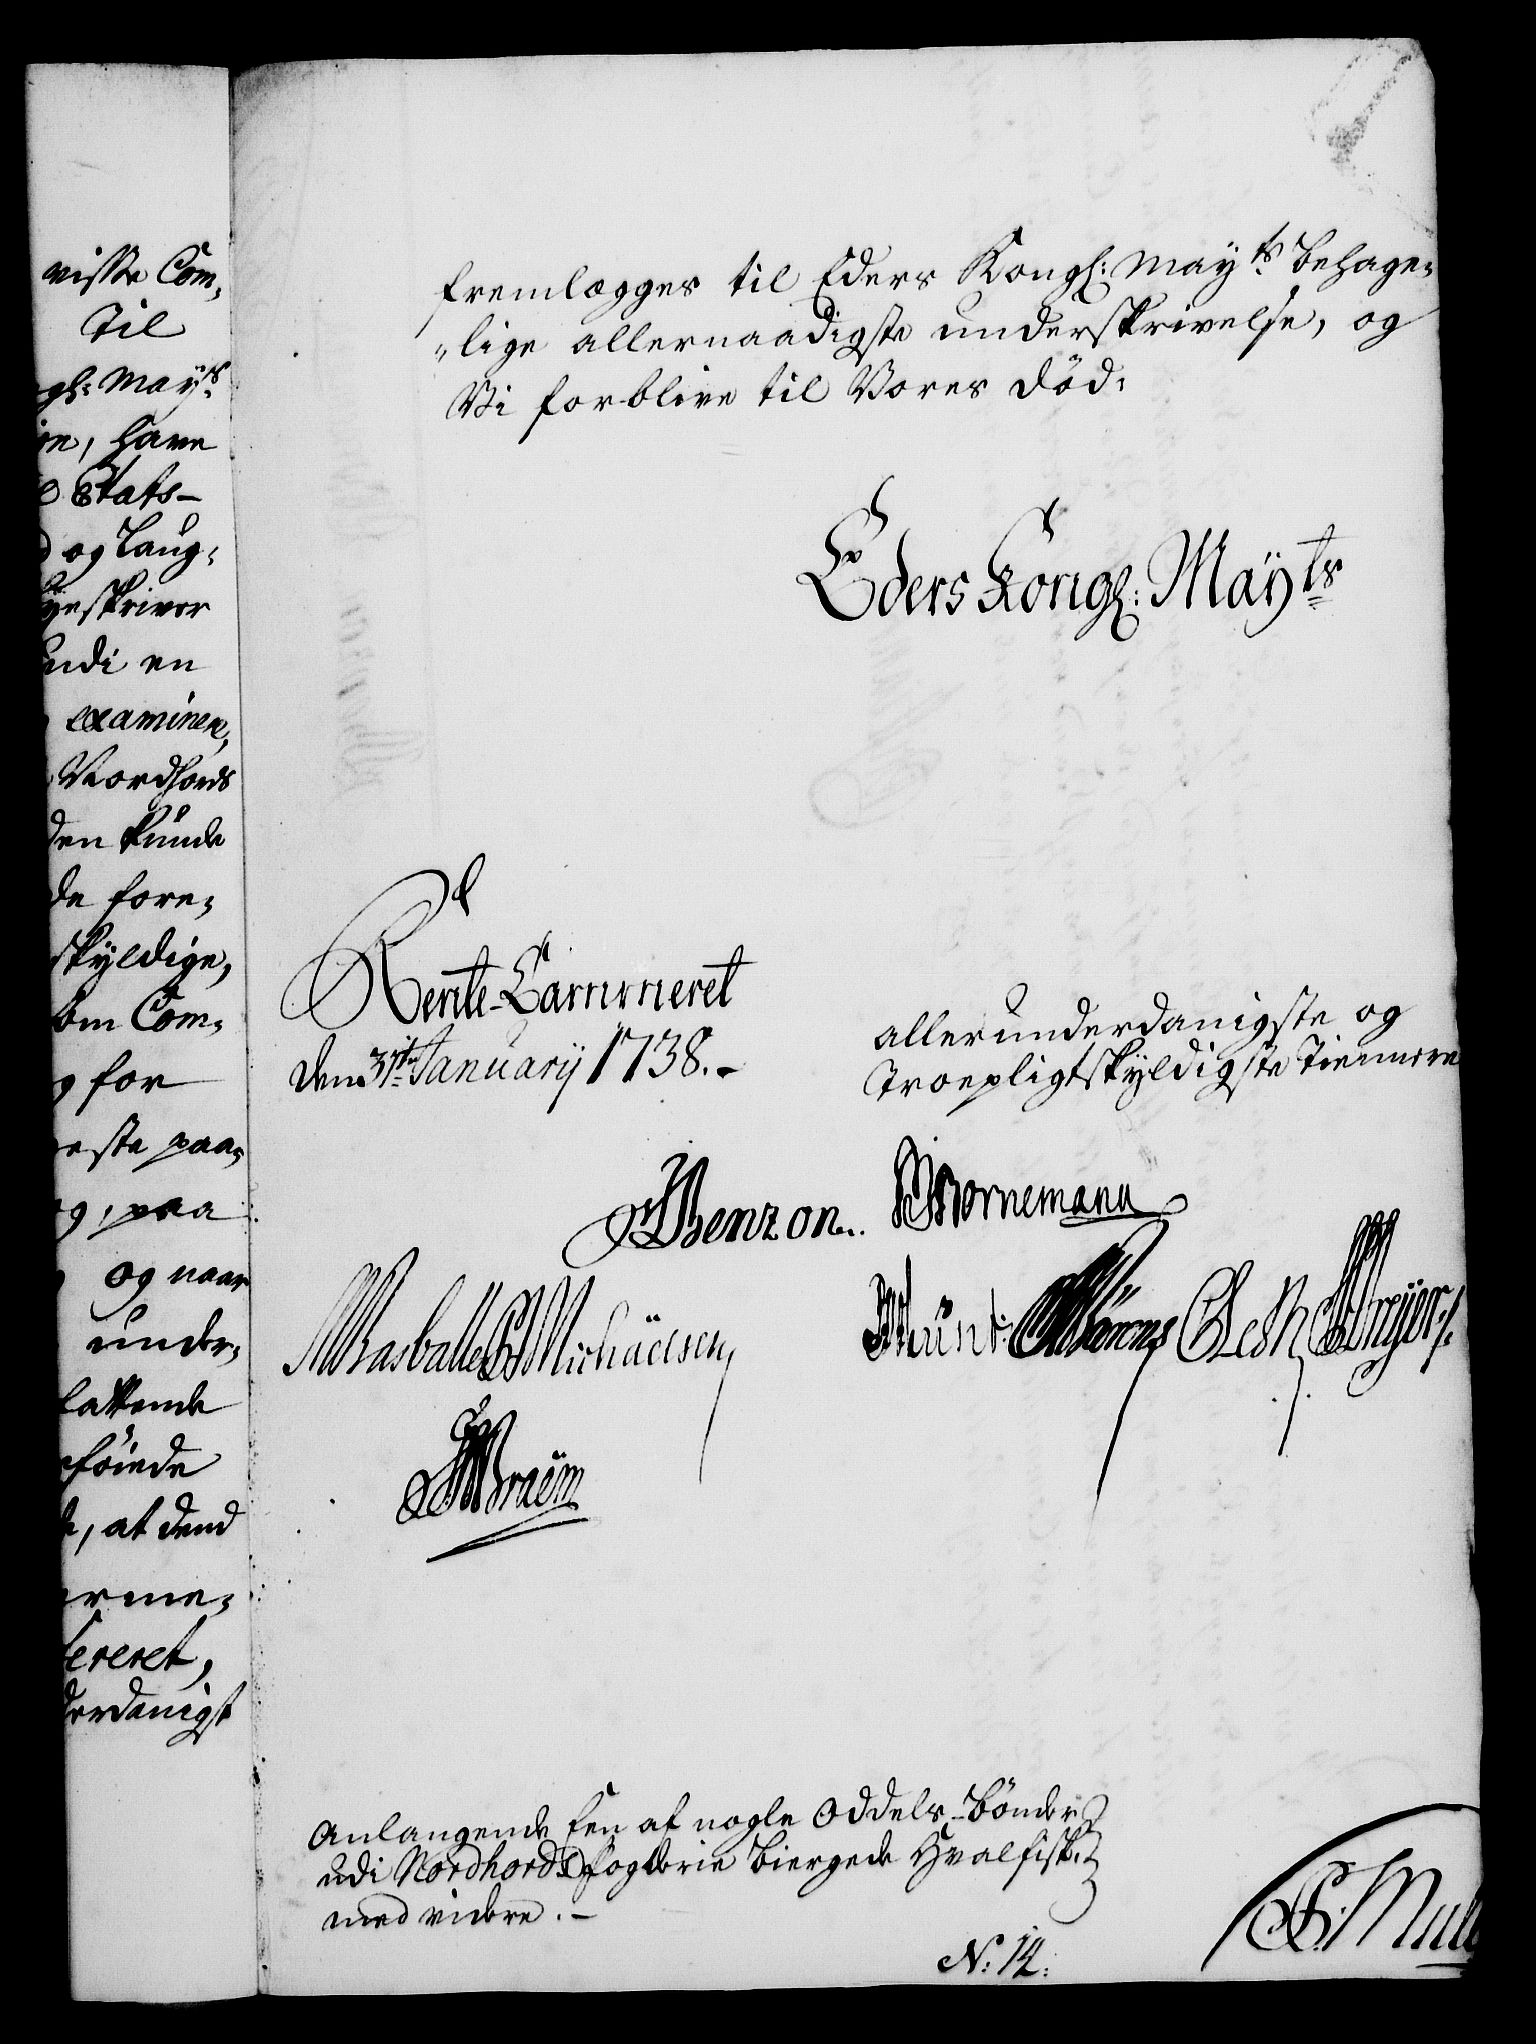 visse Com,
Til
gh: Mayts
have
Etats-
og Laug,
skriver
udi en
examinere,
Nordhords
den kunde
de fore,
skyldige,
om Com,
for
este paa,
paa
og naar
under,
føiede
at dend
erme,
fereret,
derdanigst
fremlægges til Eders Kongl: Mayts behage,
"lige allernaadigste underskrivelse, og
Vi forblive til Vores død,
Eders Kongl: Mayts
Rente-Cammeret
den 31te January 1738.-
allerunderdanigste og
Troepligtskyldigste Tiennere
Benzon.. Bornemann
Rasballe Michäelsen
Munt: Dreyer
Braëm
Anlangende Een af nogle Oddels-Bønder
udi Nordhords fogderie biergede Hvalfisk,
med videre.-
N: 14: